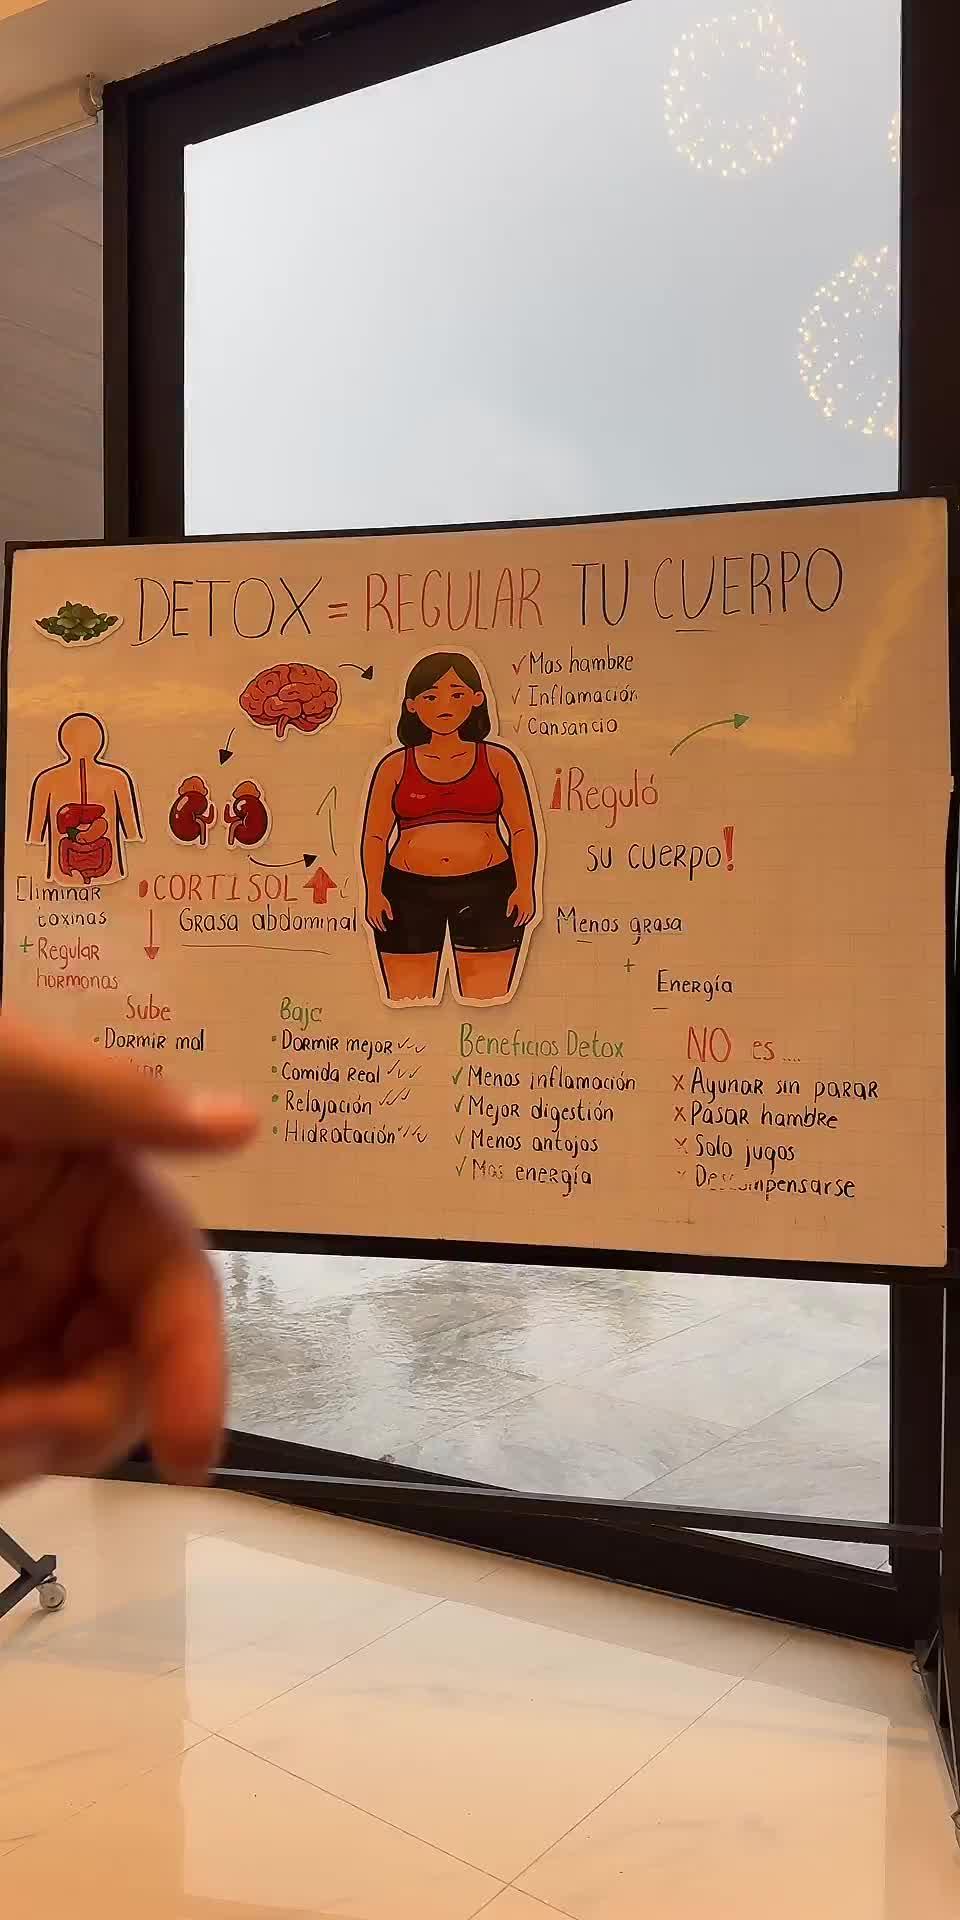 DETOX = REGULAR TU CUERPO
✓ Mas hambre
✓ Inflamación
✓ Cansancio
¡Reguló
su cuerpo!
Eliminar
toxinas
+ Regular
hormonas
• CORTISOL
Grasa abdominal
Menos grasa
+
Energía
Sube
• Dormir mal
Baja
• Dormir mejor ✓✓
• Comida Real ✓✓✓
• Relajación ✓✓✓
• Hidratación ✓✓✓
Beneficios Detox
✓ Menos inflamación
✓ Mejor digestión
✓ Menos antojos
✓ Mas energía
NO es....
X Ayunar sin parar
X Pasar hambre
X Solo jugos